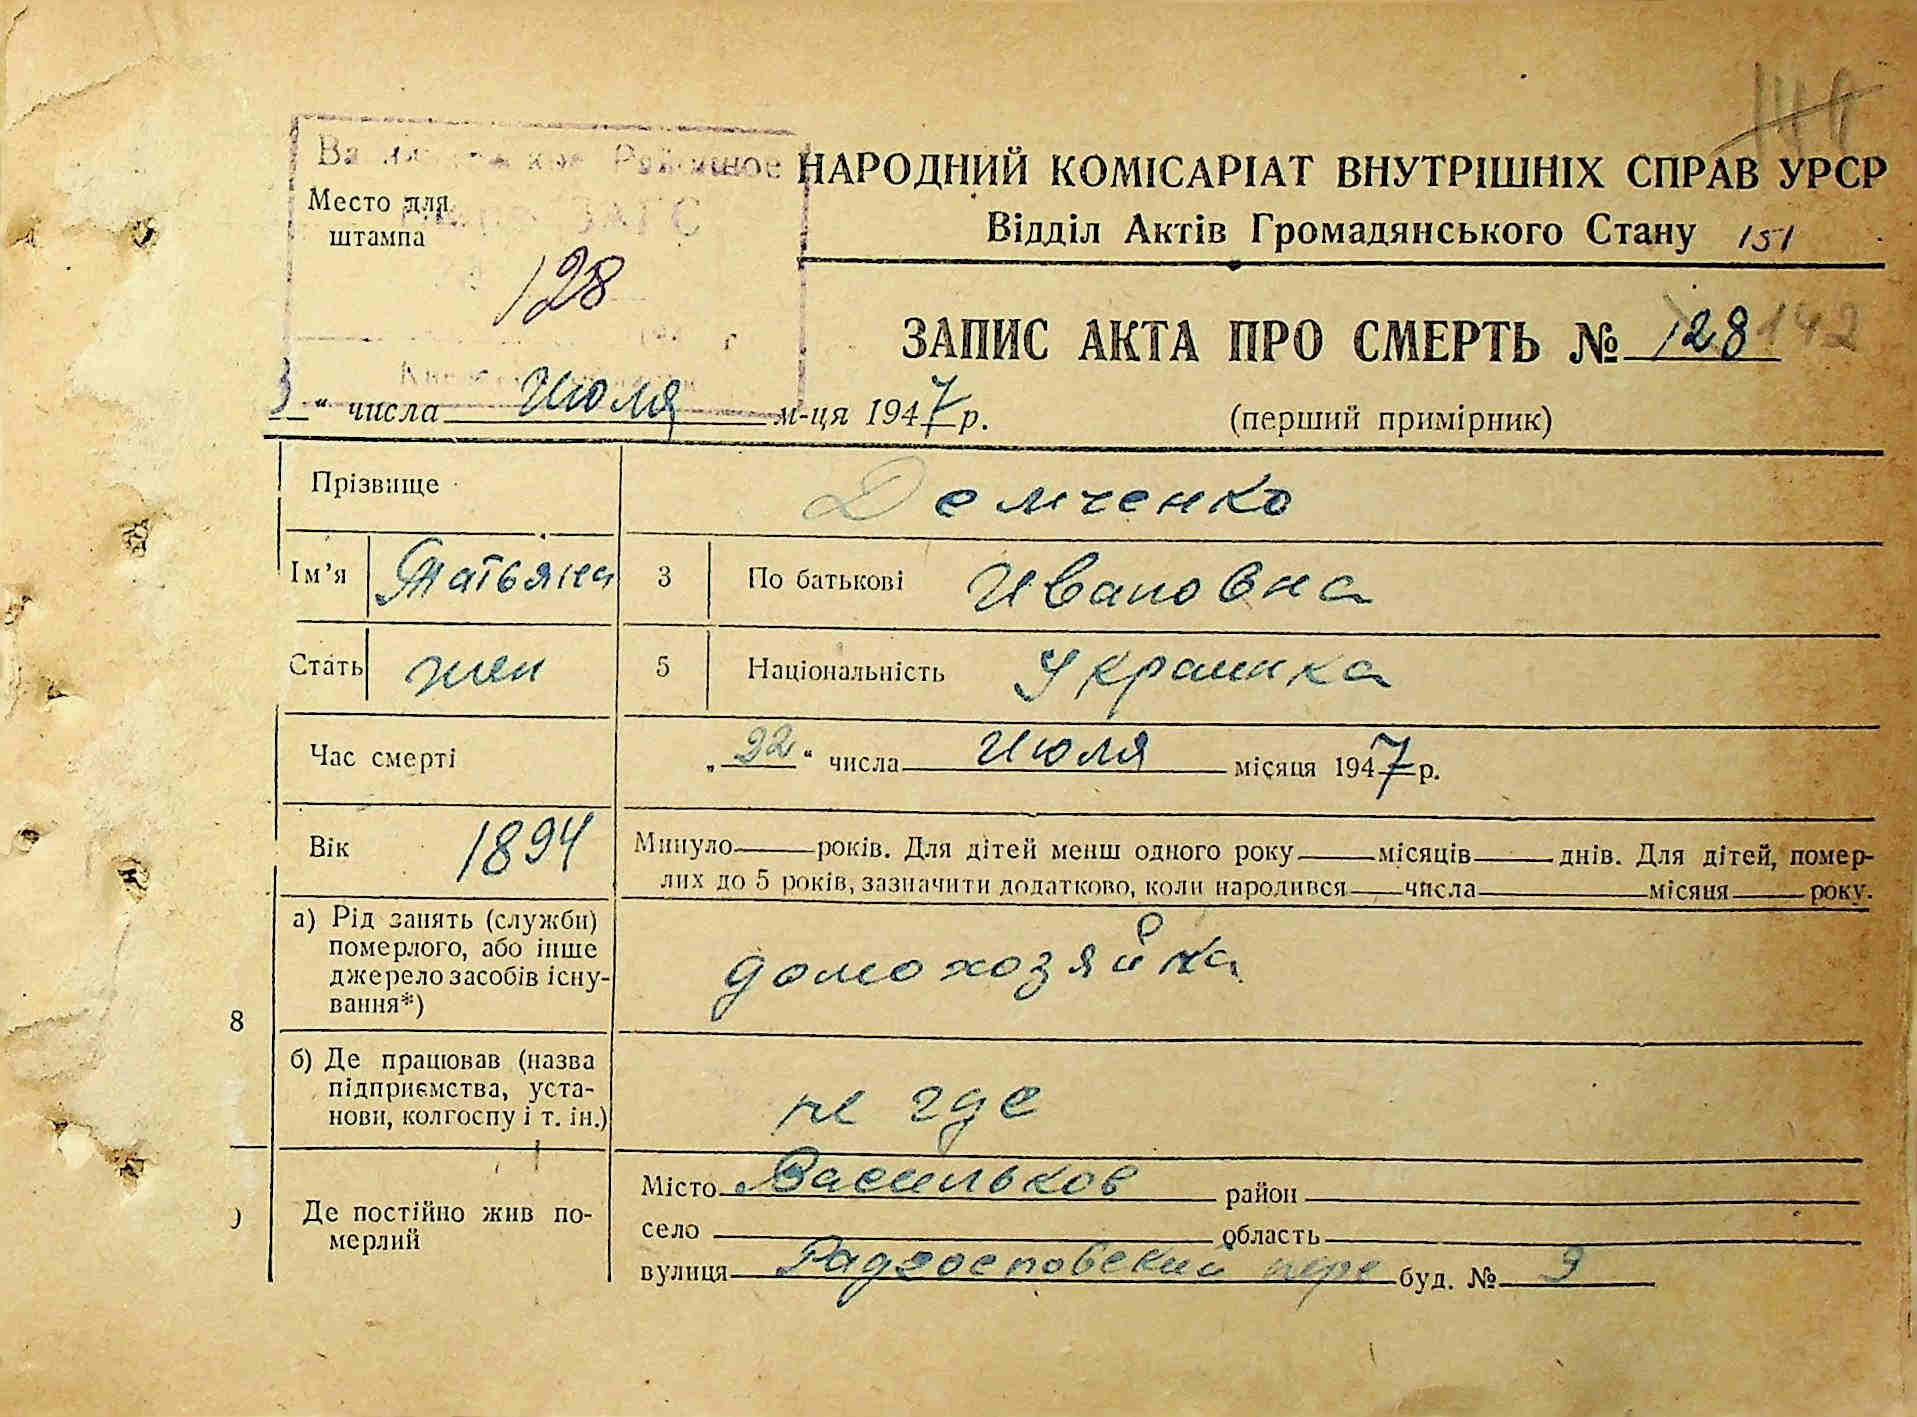 Районное
НАРОДНИЙ КОМІСАРІАТ ВНУТРІШНІХ СПРАВ УРСР
Место для штампа
ЗАГС
Відділ Актів Громадянського Стану 151
128
ЗАПИС АКТА ПРО СМЕРТЬ № 128 142
“ числа Июля м-ця 1947 р.
(перший примірник)
Прізвище Демченко
Ім’я Татьяна 3 По батькові Ивановна
Стать жен 5 Національність Украинка
Час смерті „22“ числа Июля місяця 1947 р.
Вік 1894 Минуло років. Для дітей менш одного року місяців днів. Для дітей, помер-
лих до 5 років, зазначити додатково, коли народився числа місяця року.
а) Рід занять (служби)
померлого, або інше
джерело засобів існу-
вання*)
домохозяйка
8
б) Де працював (назва
підприємства, уста-
нови, колгоспу і т. ін.)
не где
Де постійно жив по-
мерлий
Місто Васильков район
село область
вулиця Радгосповский пере буд. №